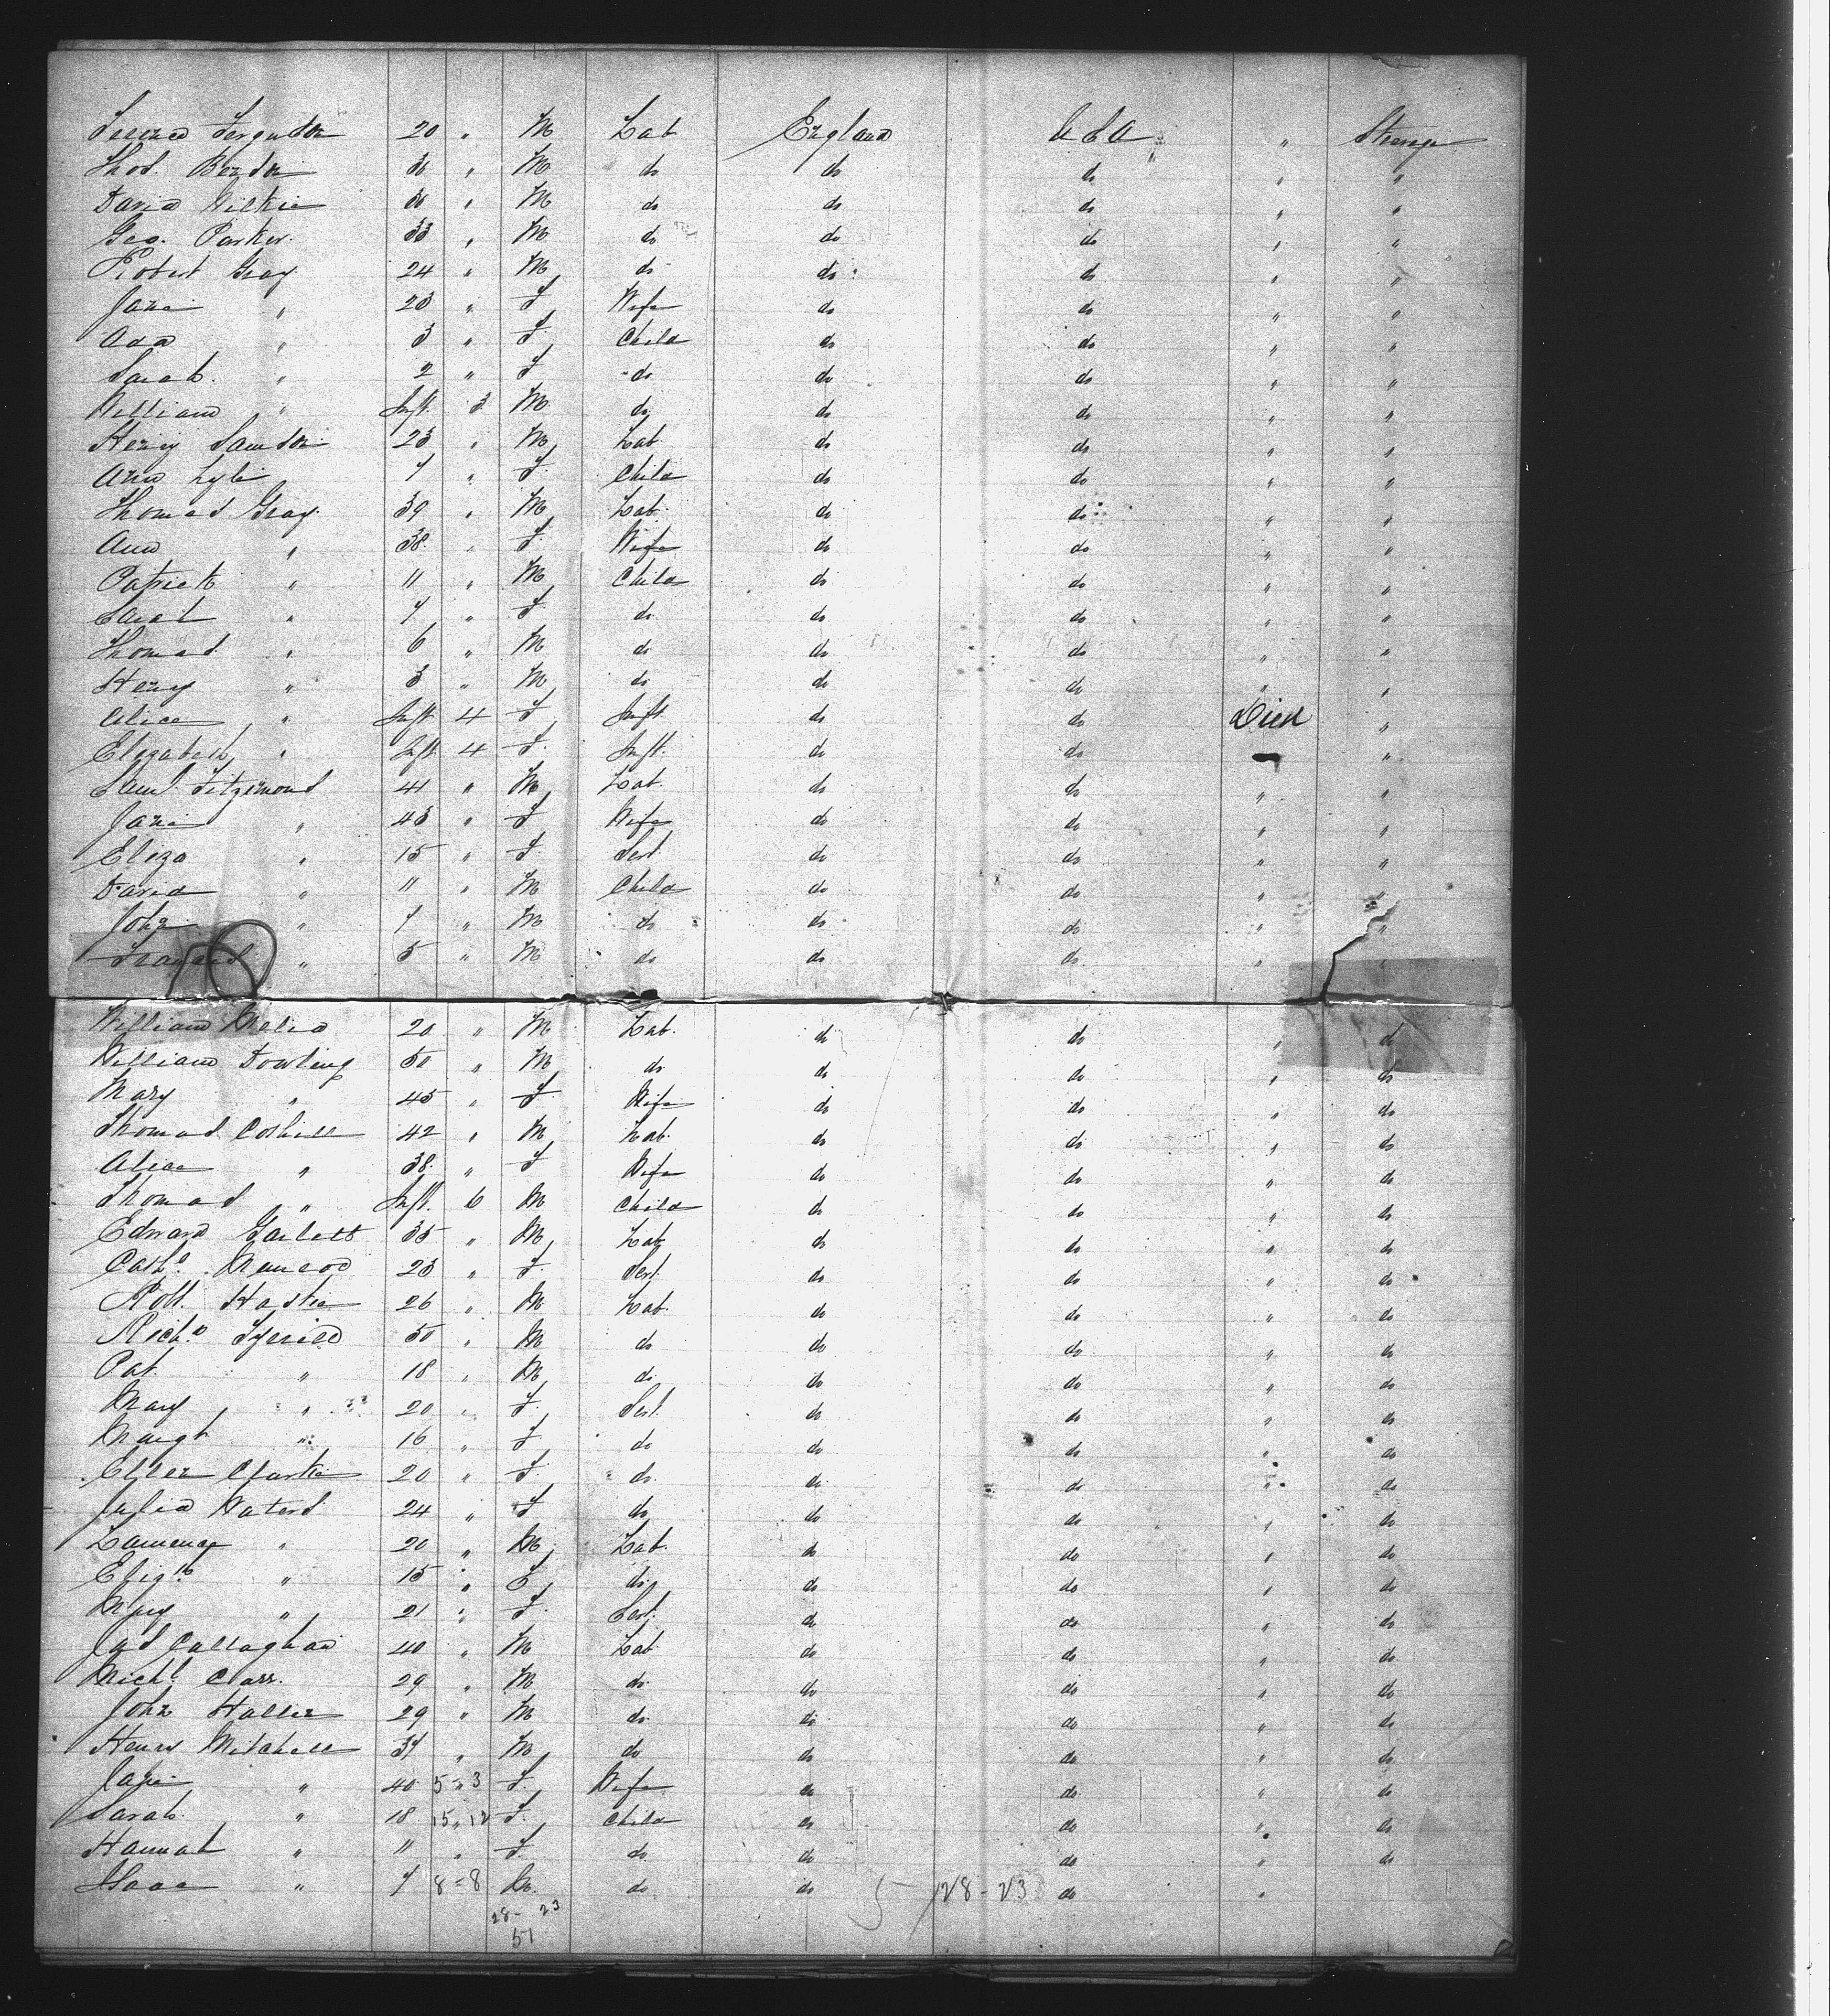 Ferguson 20 " M Lab England U S A " Steerage
Thos. 30 " M do do do " "
David Wilkie 30 " M do do do " "
Geo. Parker. 33 " M do do do " "
Robert Gray 24 " M do do do " "
Jane " 23 " F Wife do do " "
Ada " 3 " F Child do do " "
Sarah. " 2 " F do do do " "
William " Inft. 3 M do do do " "
Henry Samson 23 " M Lab do do " "
Ann Lyle 7 " F Child do do " "
Thomas Gray. 39 " M Lab. do do " "
Ann " 38. " F Wife do do " "
Patrick " 11 " M Child do do " "
Sarah " 7 " F do do do " "
Thomas " 6 " M do do do " "
Henry " 3 " M do do do " "
Alice " Inft 4 F Inft do do Died "
Elizabeth " Inft. 4 F. Inft. do do "
Saml. Fitzsimons 41 " M Lab. do do " "
Jane " 43 " F Wife do do " "
Eliza " 15 " F. Sert. do do " "
David " 11 " M Child do do " "
John " 7 " M do do do " "
Francis " 5 " M do do do " "
William Melia 20 " M Lab. do do " do
William Dowling 50 " M do do do " do
Mary " 45 " F. Wife do do " do
Thomas 42 " M Lab. do do " do
Alice " 38. " F Wife do do " do
Thomas " Inft. 6 M Child do do " do
Edward 35 " M Lab do do " do
Cathe. 23 " F. Sert. do do " do
Robt. Hastie 26 " M Lab. do do " do
Richd. 50 " M do do do " do
Pat. " 18 " M do do do " do
Mary " 20 " F. Sert. do do " do
Margt " 16 " F do do do " do
Ellen Clarke 20 " F do do do " do
Julia Waters 24 " F do do do " do
Lawrence " 20 " M Lab. do do " do
Elizth " 15 " F do do do " do
Mary " 21 " F. Sert. do do " do
Jas Callaghan 40 " M Lab do do " do
Michl. Carr. 29 " M do do do " do
John 29 " M do do do " do
Henry Mitchell 37 " M do do do " do
Jane " 40 5 " 3 F. Wife do do " do
Sarah. " 18 15 " 12 F. Child do do " do
Hannah " 11 " F. do do do " do
Isaac " 7 8 = 8 M. do do 5 /28 - 23 do "
28 - 23
51